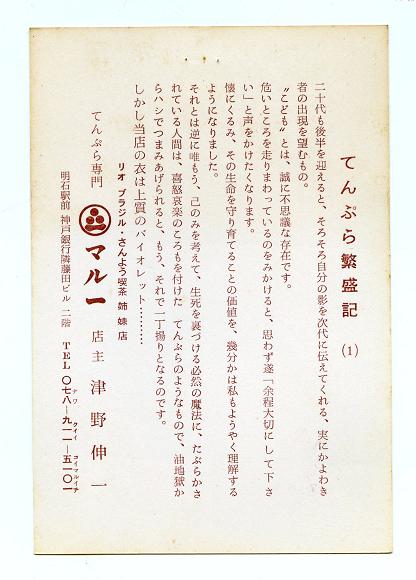 てんぷら繁盛記 (1)
二十代も後半を迎えると、そろそろ自分の影を次代に伝えてくれる、実にかよわき
者の出現を望むもの。
〝こども〟とは、誠に不思議な存在です。
危いところを走りまわっているのをみかけると、思わず遂「余程大切にして下さ
い」と声をかけたくなります。
懐にくるみ、その生命を守り育てることの価値を、幾分かは私もようやく理解する
ようになりました。
それとは逆に唯もう、己のみを考えて、生死を裏づける必然の魔法に、たぶらかさ
れている人間は、喜怒哀楽のころもを付けた てんぷらのようなもので、油地獄か
らハシでつまみあげられると、もう、それで一丁揚りとなるのです。
しかし当店の衣は上質のバイオレット………
リオ ブラジル・さんよう喫茶 姉妹店
てんぷら専門 マルー 店主 津野伸一
明石駅前 神戸銀行隣藤田ビル 二階 TEL 〇七八―九一一―五一〇一